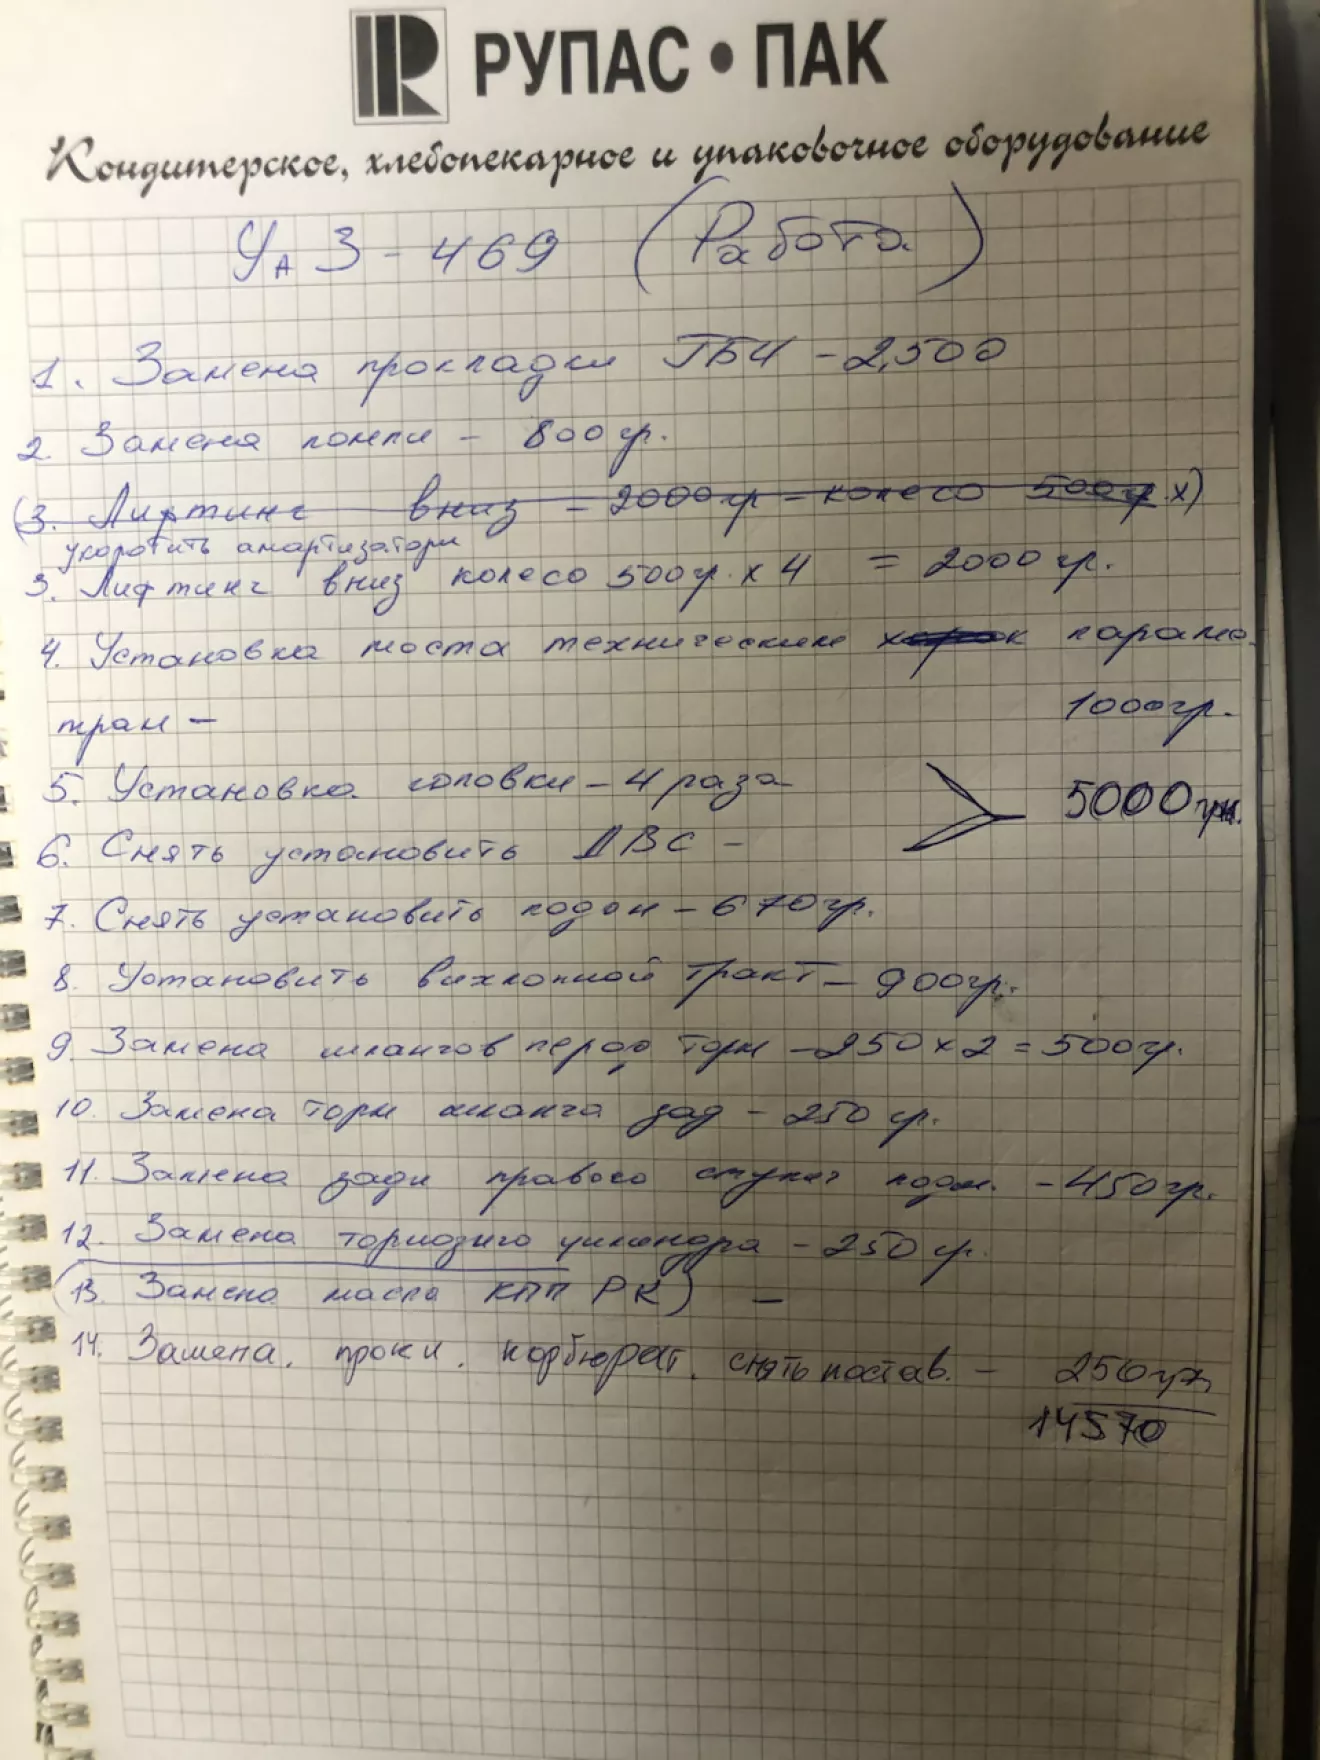 РУПАС • ПАК
Кондитерское, хлебопекарное и упаковочное оборудование
УАЗ - 469 (Работа)
1. Замена прокладки ГБЦ - 2,500
2. Замена помпи - 800 гр.
(3. Лифтинг вниз - 2000 гр - колесо 500 гр. х)
укоротить амартизатори
3. Лифтинг вниз колесо 500 гр. х 4 = 2000 гр.
4. Установка моста техническим параме
трам - 1000 гр.
5. Установка головки - 4 раза
5000 грн.
6. Снять установить ДВС -
7. Снять установить подон - 670 гр.
8. Установить вихлопной тракт - 900 гр.
9. Замена шлангов перед торм - 250 х 2 = 500 гр.
10. Замена торм шланга зад - 250 гр.
11. Замена зади правого ступич подш. - 450 гр.
12. Замена тормозного цилиндра - 250 гр.
(13. Замена масла КПП РК) -
14. Замена. прокл. карбюрат. снять постав. - 250 грн
14570